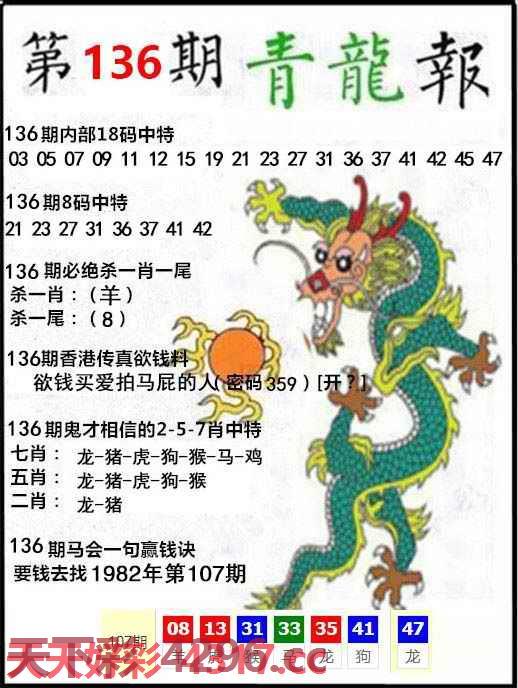 第136期青龍報
136期内部18码中特
03 05 07 09 11 12 15 19 21 23 27 31 36 37 41 42 45 47
136期8码中特
21 23 27 31 36 37 41 42
136期必绝杀一肖一尾
杀一肖：（羊）
杀一尾：（8）
136期香港传真欲钱料
欲钱买爱拍马屁的人（密码359）[开？]
136期鬼才相信的2-5-7肖中特
七肖：龙-猪-虎-狗-猴-马-鸡
五肖：龙-猪-虎-狗-猴
二肖：龙-猪
136期马会一句赢钱诀
要钱去找1982年第107期
107期 08 13 31 33 35 41 47
羊 虎 猴 马 龙 狗 龙
天下好彩42967.cc